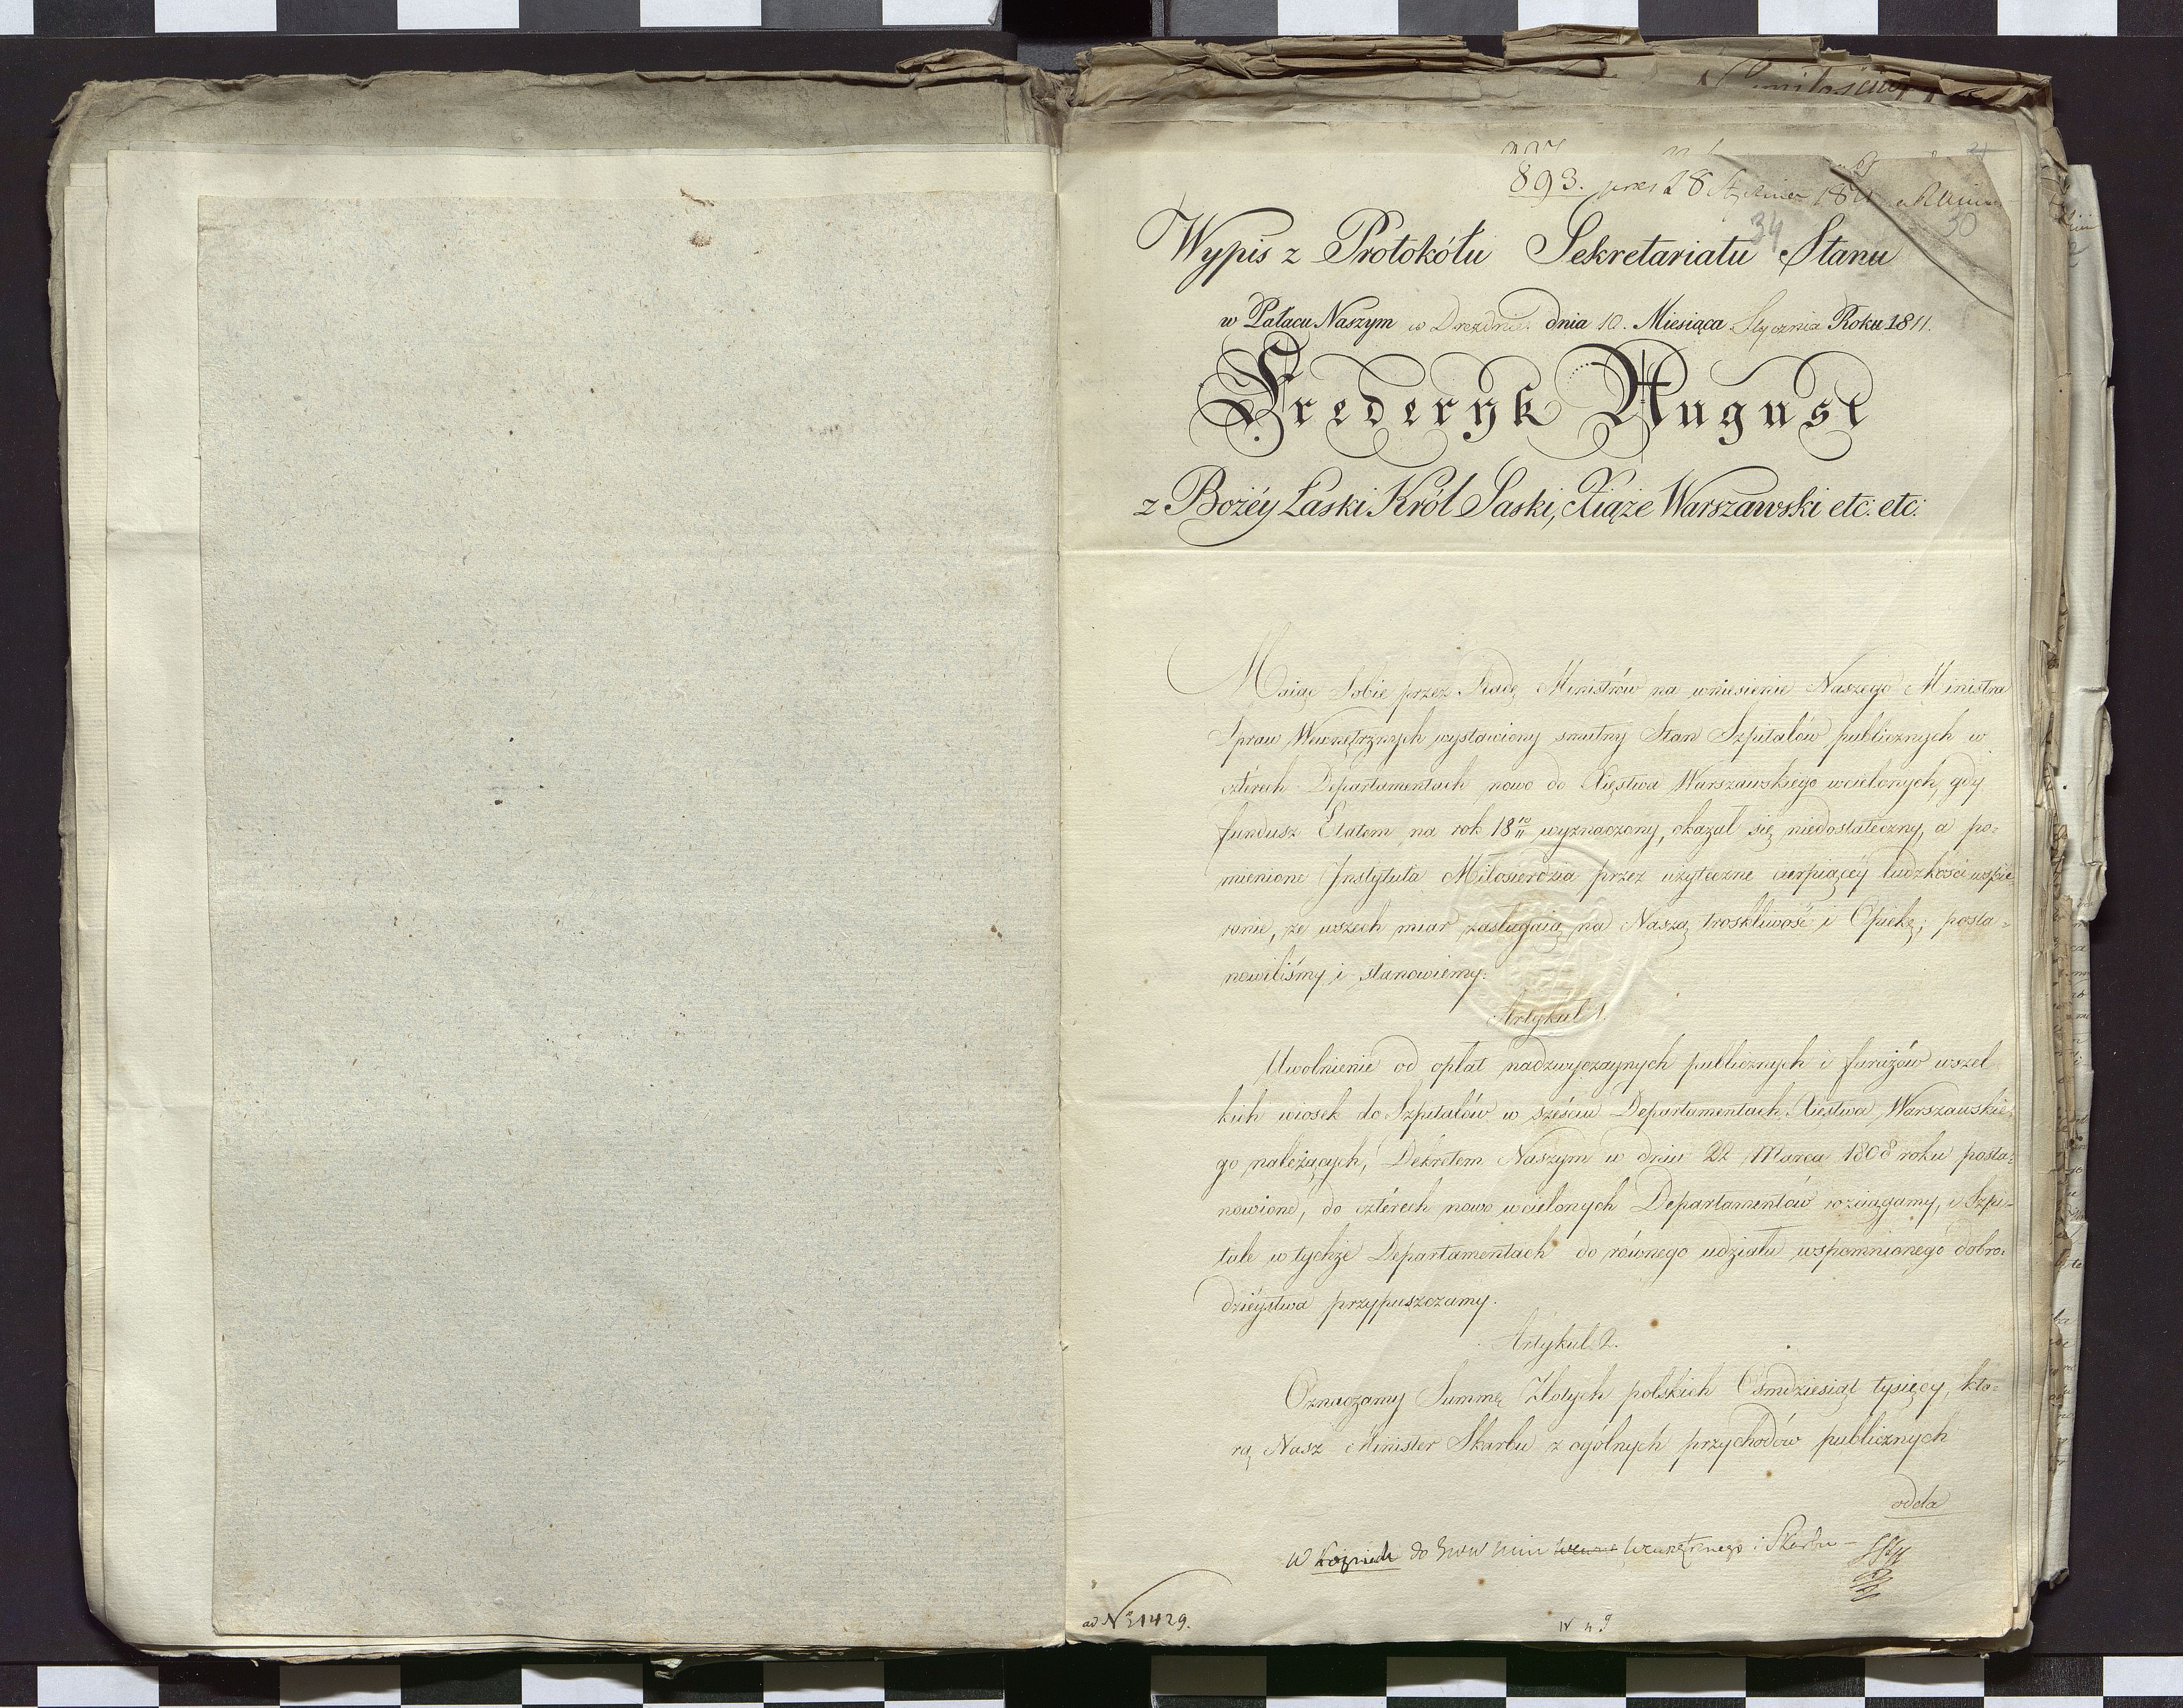 893. pres 28 Stycznia 1811
34
30
Wypis z Protokółu Sekretariatu Stanu
w Pałacu Naszym w Dreźnie dnia 10. Miesiąca Stycznia Roku 1811.
Frederyk August
z Bożéy Łaski Król Saski, Xiąże Warszawski etc: etc:
Maiąc Sobie przez Radę Ministrów na wniesienie Naszego Ministra
Spraw Wewnętrznych wystawiony smutny Stan Szpitalów publicznych w
czterech Departamentach nowo do Xięstwa Warszawskiego wcielonych, gdy
fundusz Etatem na rok 18 10/11 wyznaczony, okazał się niedostateczny, a po=
mienione Instytuta Miłosierdzia przez użyteczne cierpiącéy ludzkości wspie=
ranie, ze wszech miar zasługaią na Naszą troskliwość i Opiekę; posta=
nowiliśmy i stanowiemy:
Artykuł 1.
Uwolnienie od opłat nadzwyczaynych publicznych i furażów wszel
kich wiosek do Szpitalów w sześciu Departamentach Xięstwa Warszawskie
go należących, Dekretem Naszym w dniu 22 Marca 1808 roku posta=
nowione, do czterech nowo wcielonych Departamentów rozciągamy, i Szpi=
tale w tychże Departamentach do równego udziału wspomnionego dobro=
dziéystwa przypuszczamy.
Artykuł 2.
Oznaczamy Summę Złotych polskich Osmdziesiąt tysięcy, któ=
rą Nasz Minister Skarbu z ogólnych przychodów publicznych
odda
W kopiach do Min Wewnętrznego i Skarbu —
ad Nº 1429.